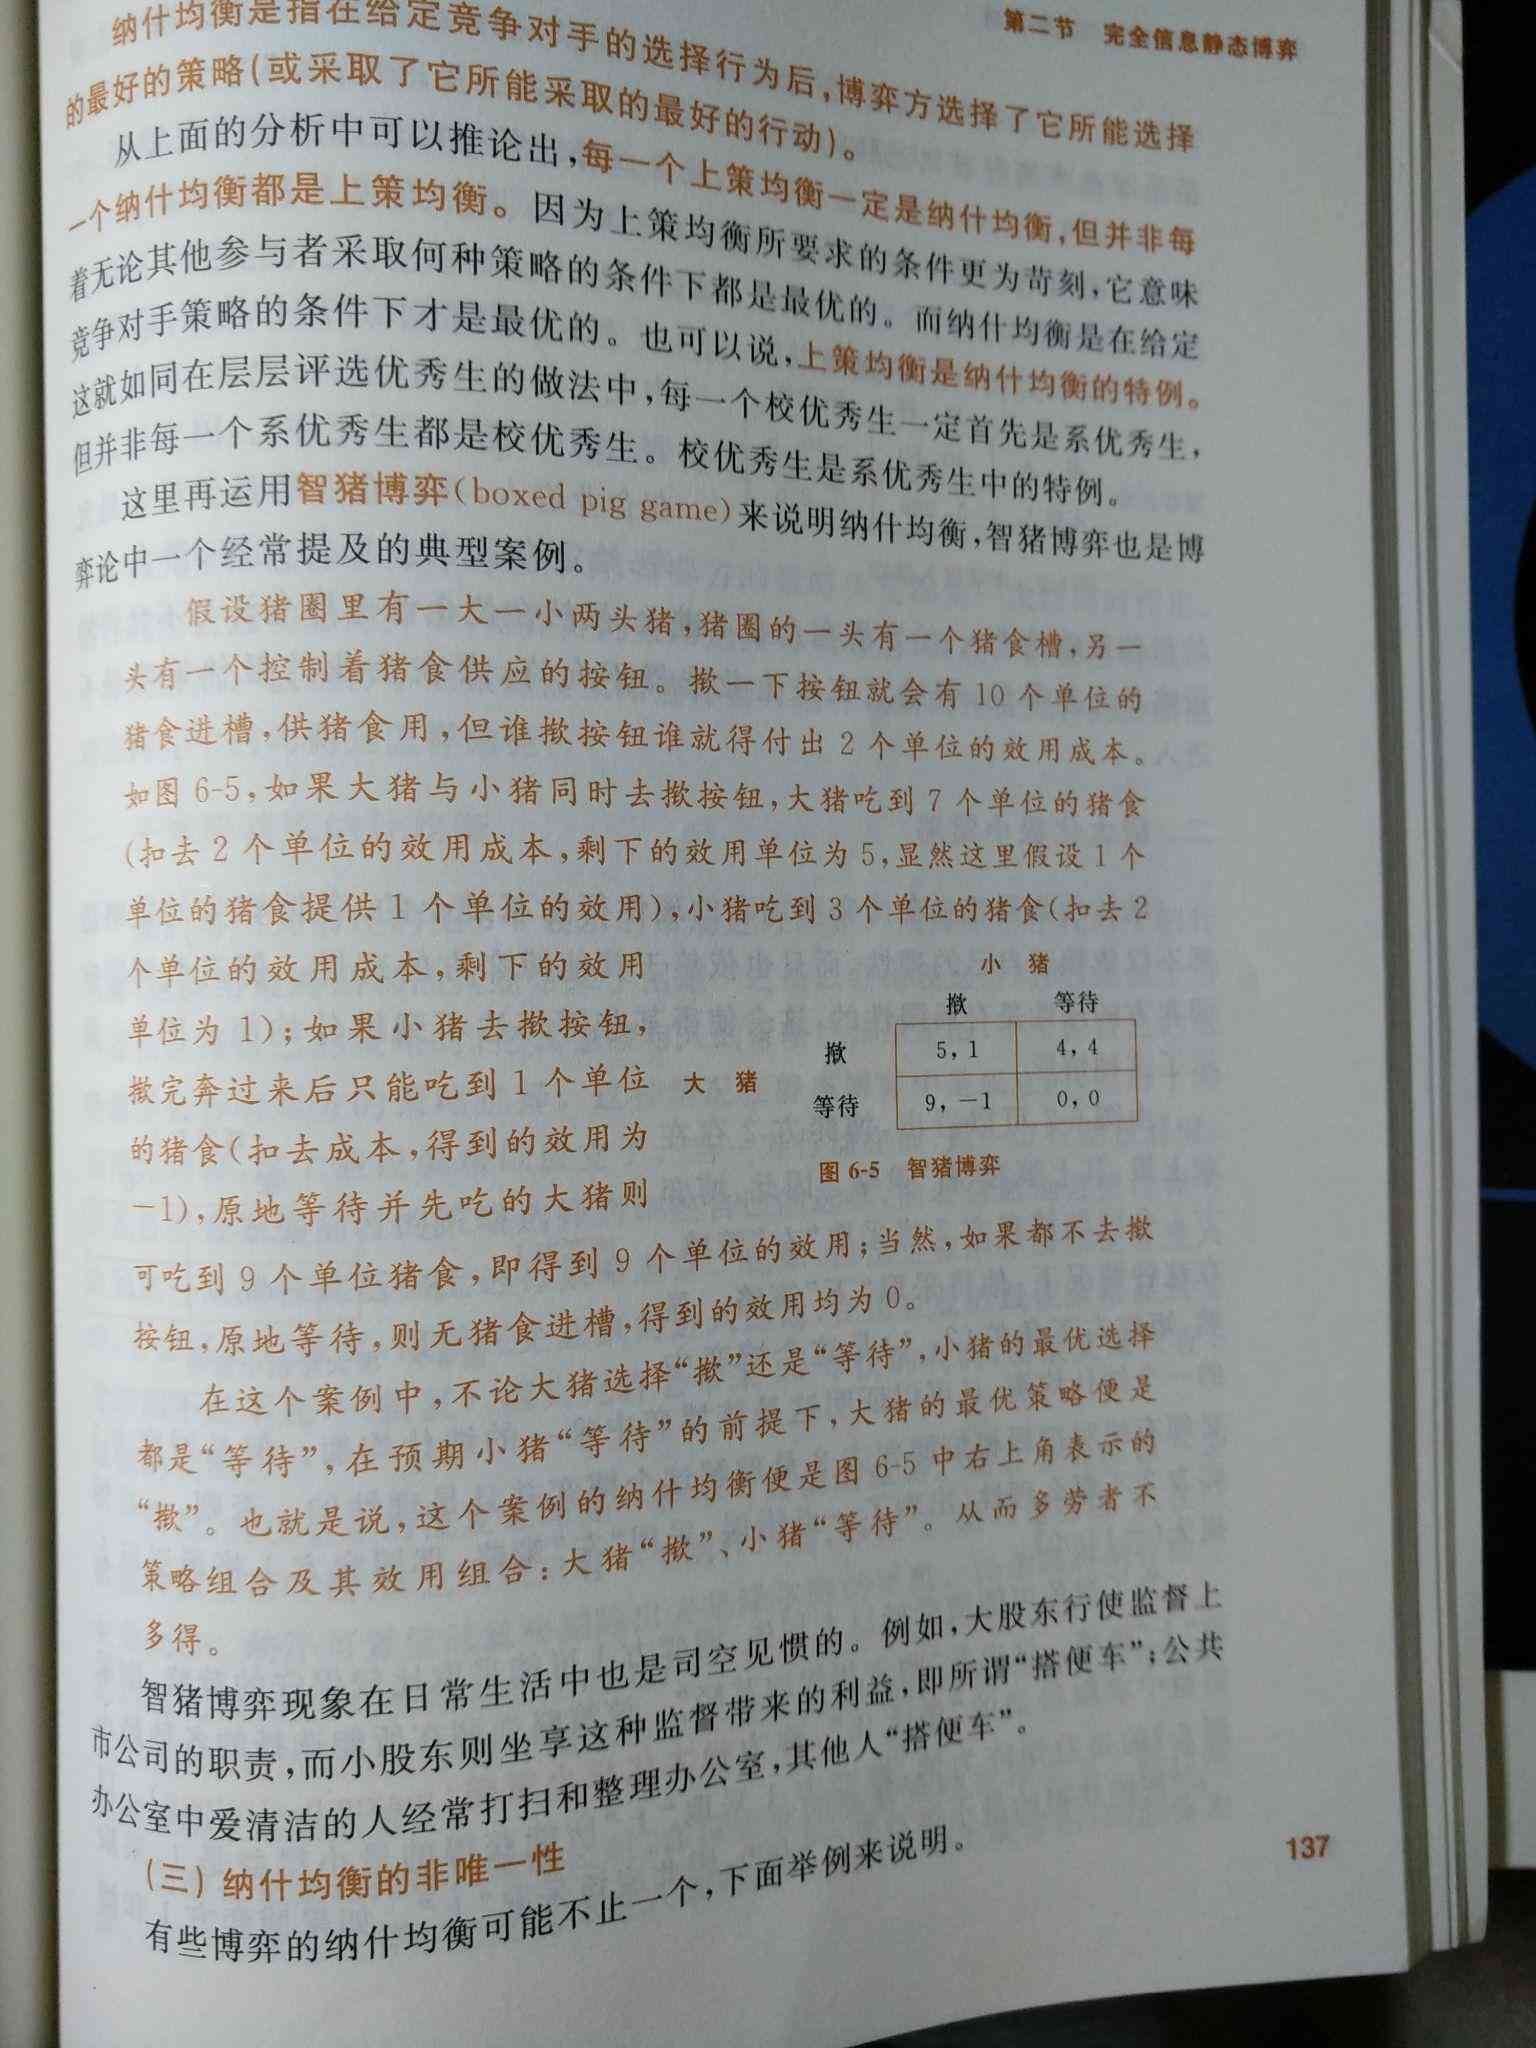 第二节 完全信息静态博弈
纳什均衡是指在给定竞争对手的选择行为后,博弈方选择了它所能选择
的最好的策略(或采取了它所能采取的最好的行动)。
从上面的分析中可以推论出,每一个上策均衡一定是纳什均衡,但并非每
一个纳什均衡都是上策均衡。因为上策均衡所要求的条件更为苛刻,它意味
着无论其他参与者采取何种策略的条件下都是最优的。而纳什均衡是在给定
竞争对手策略的条件下才是最优的。也可以说,上策均衡是纳什均衡的特例。
这就如同在层层评选优秀生的做法中,每一个校优秀生一定首先是系优秀生,
但并非每一个系优秀生都是校优秀生。校优秀生是系优秀生中的特例。
这里再运用智猪博弈(boxed pig game)来说明纳什均衡,智猪博弈也是博
弈论中一个经常提及的典型案例。
假设猪圈里有一大一小两头猪,猪圈的一头有一个猪食槽,另一
头有一个控制着猪食供应的按钮。揿一下按钮就会有 10 个单位的
猪食进槽,供猪食用,但谁揿按钮谁就得付出 2 个单位的效用成本。
如图 6-5,如果大猪与小猪同时去揿按钮,大猪吃到 7 个单位的猪食
(扣去 2 个单位的效用成本,剩下的效用单位为 5,显然这里假设 1 个
单位的猪食提供 1 个单位的效用),小猪吃到 3 个单位的猪食(扣去 2
个单位的效用成本,剩下的效用
单位为 1);如果小猪去揿按钮,
揿完奔过来后只能吃到 1 个单位
的猪食(扣去成本,得到的效用为
-1),原地等待并先吃的大猪则
小 猪
揿 等待
大 猪
揿 5, 1 4, 4
等待 9, -1 0, 0
图 6-5 智猪博弈
可吃到 9 个单位猪食,即得到 9 个单位的效用;当然,如果都不去揿
按钮,原地等待,则无猪食进槽,得到的效用均为 0。
在这个案例中,不论大猪选择“揿”还是“等待”,小猪的最优选择
都是“等待”,在预期小猪“等待”的前提下,大猪的最优策略便是
“揿”。也就是说,这个案例的纳什均衡便是图 6-5 中右上角表示的
策略组合及其效用组合:大猪“揿”、小猪“等待”。从而多劳者不
多得。
智猪博弈现象在日常生活中也是司空见惯的。例如,大股东行使监督上
市公司的职责,而小股东则坐享这种监督带来的利益,即所谓“搭便车”;公共
办公室中爱清洁的人经常打扫和整理办公室,其他人“搭便车”。
(三) 纳什均衡的非唯一性
有些博弈的纳什均衡可能不止一个,下面举例来说明。
137